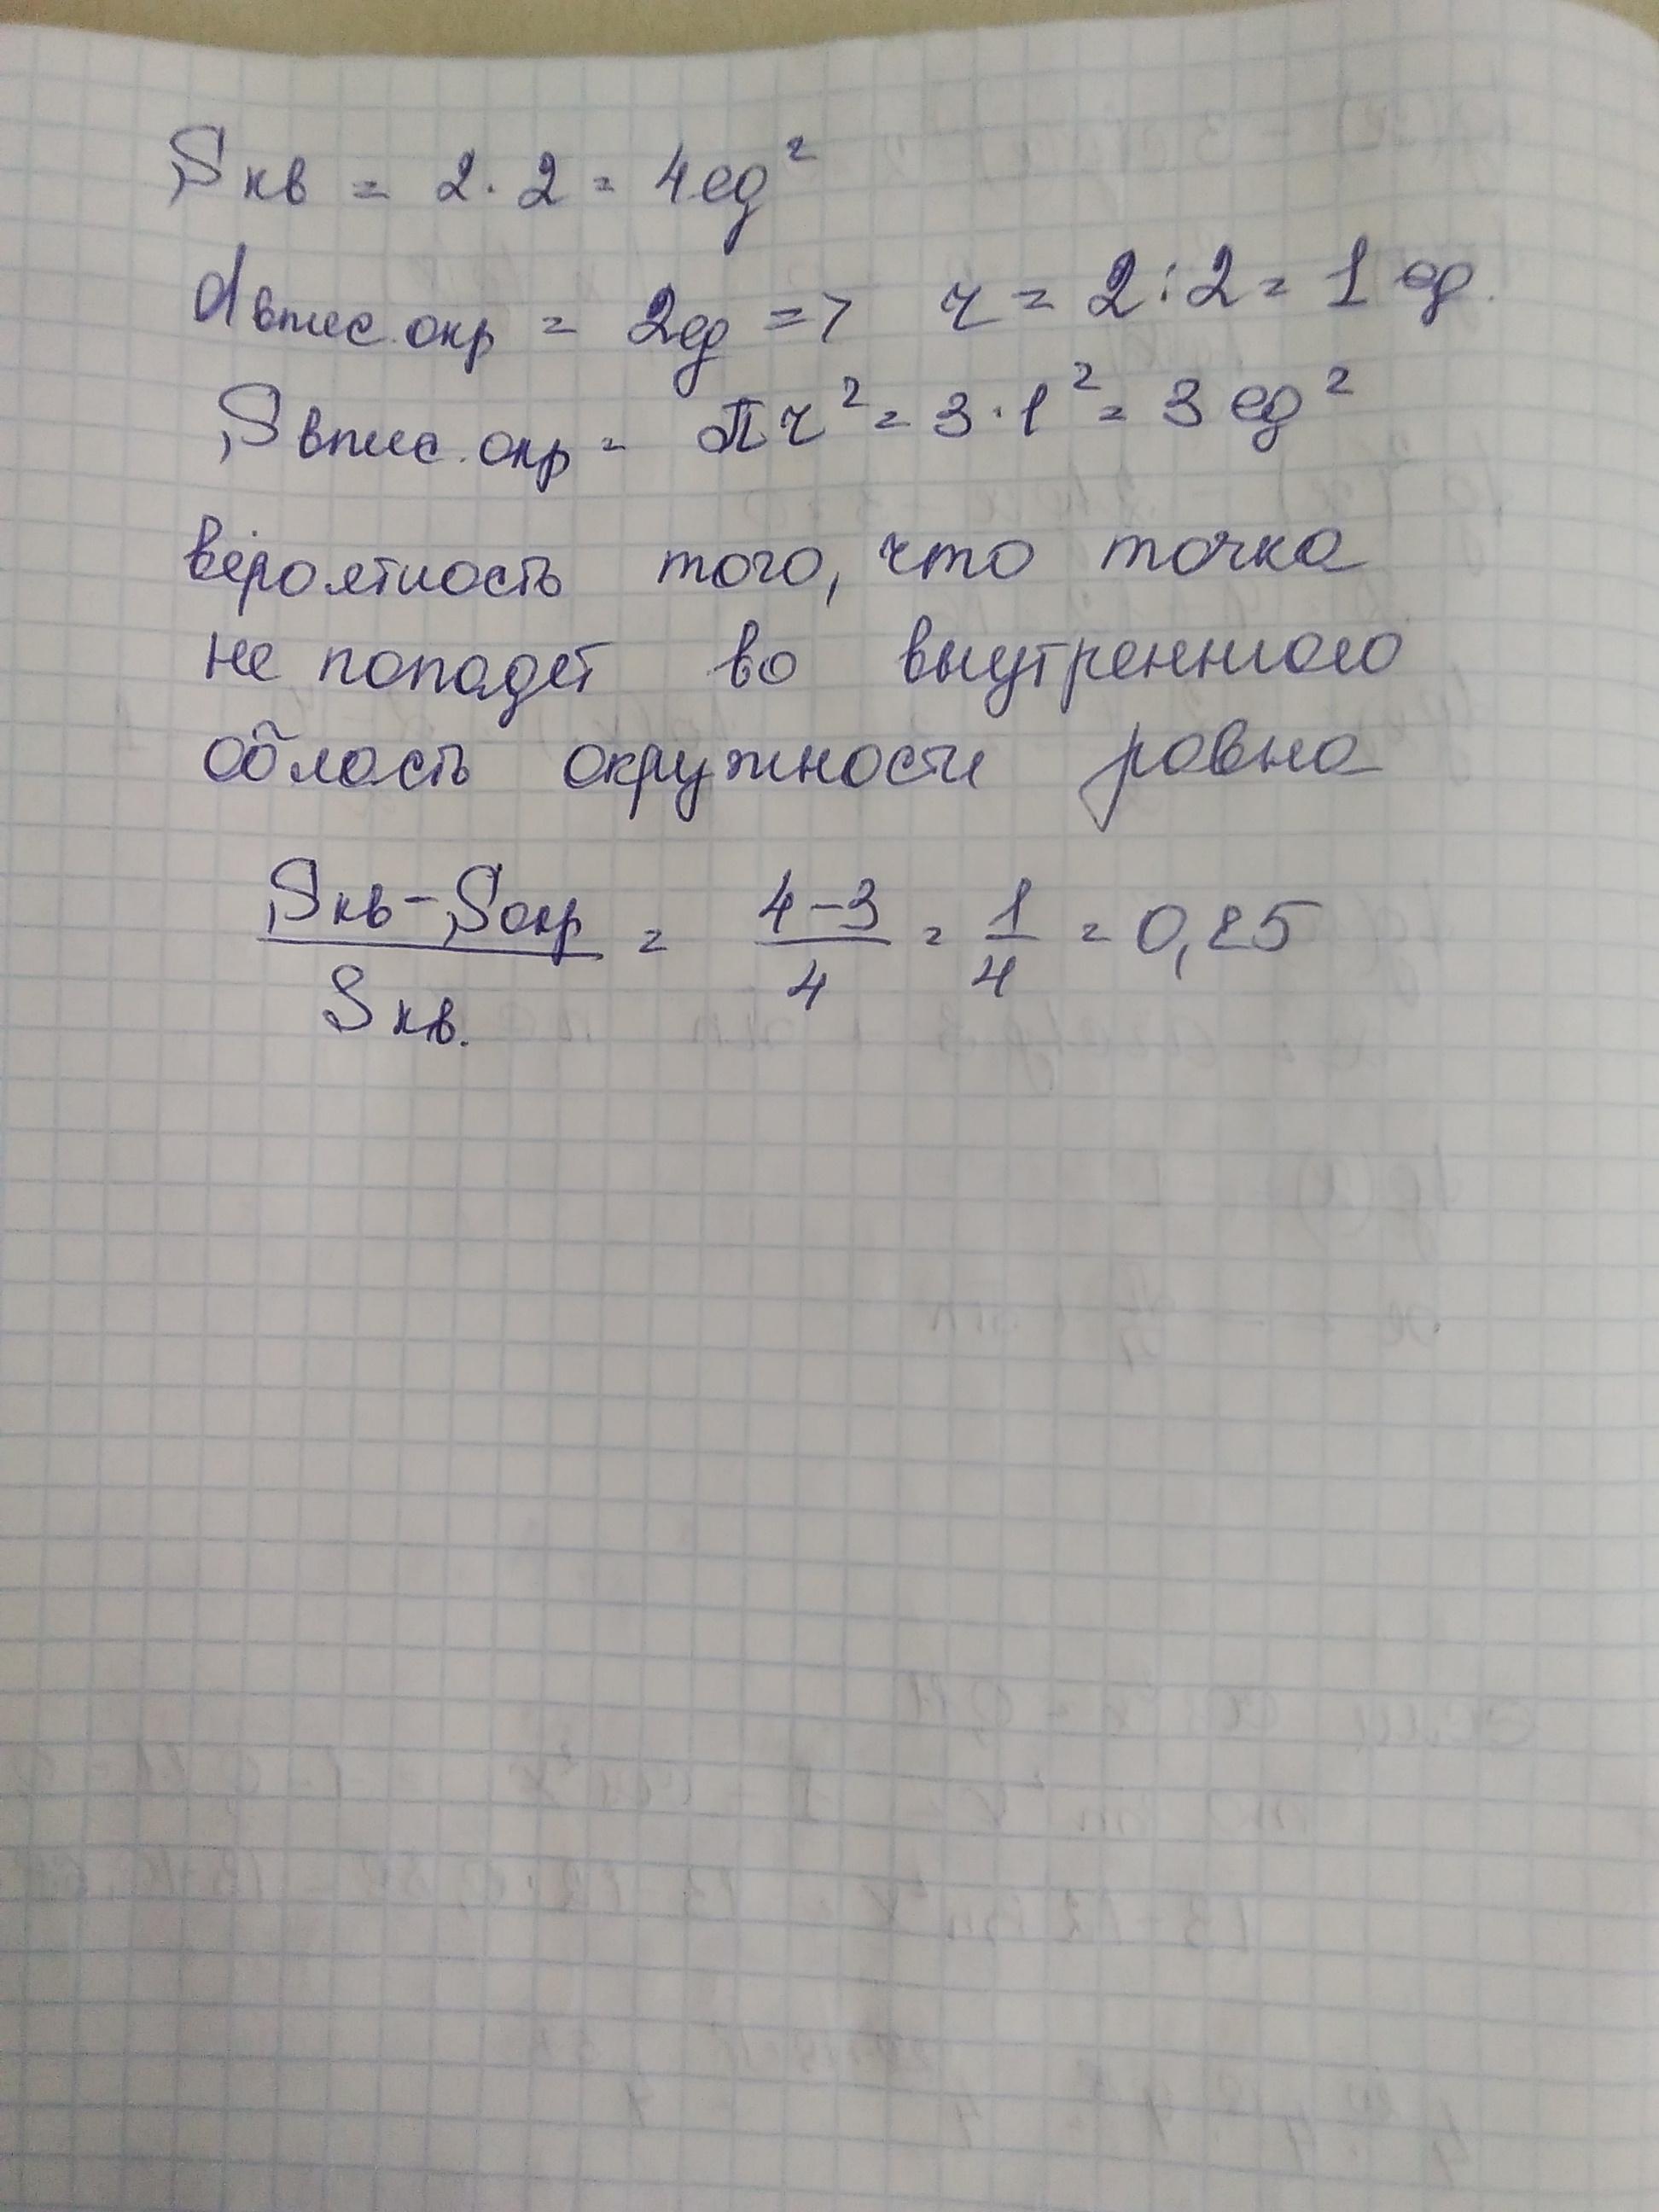 Sкв = 2·2 = 4ед²
dвпис.окр = 2ед => r = 2:2 = 1 ед.
Sвпис.окр = πr² = 3·1² = 3 ед²
вероятность того, что точка
не попадет во внутреннюю
область окружности равна
Sкв-Sокр / Sкв. = 4-3 / 4 = 1/4 = 0,25